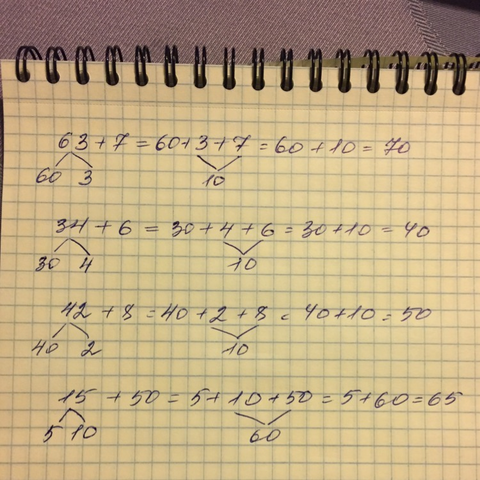 63 + 7 = 60 + 3 + 7 = 60 + 10 = 70
60 3 10
34 + 6 = 30 + 4 + 6 = 30 + 10 = 40
30 4 10
42 + 8 = 40 + 2 + 8 = 40 + 10 = 50
40 2 10
15 + 50 = 5 + 10 + 50 = 5 + 60 = 65
5 10 60